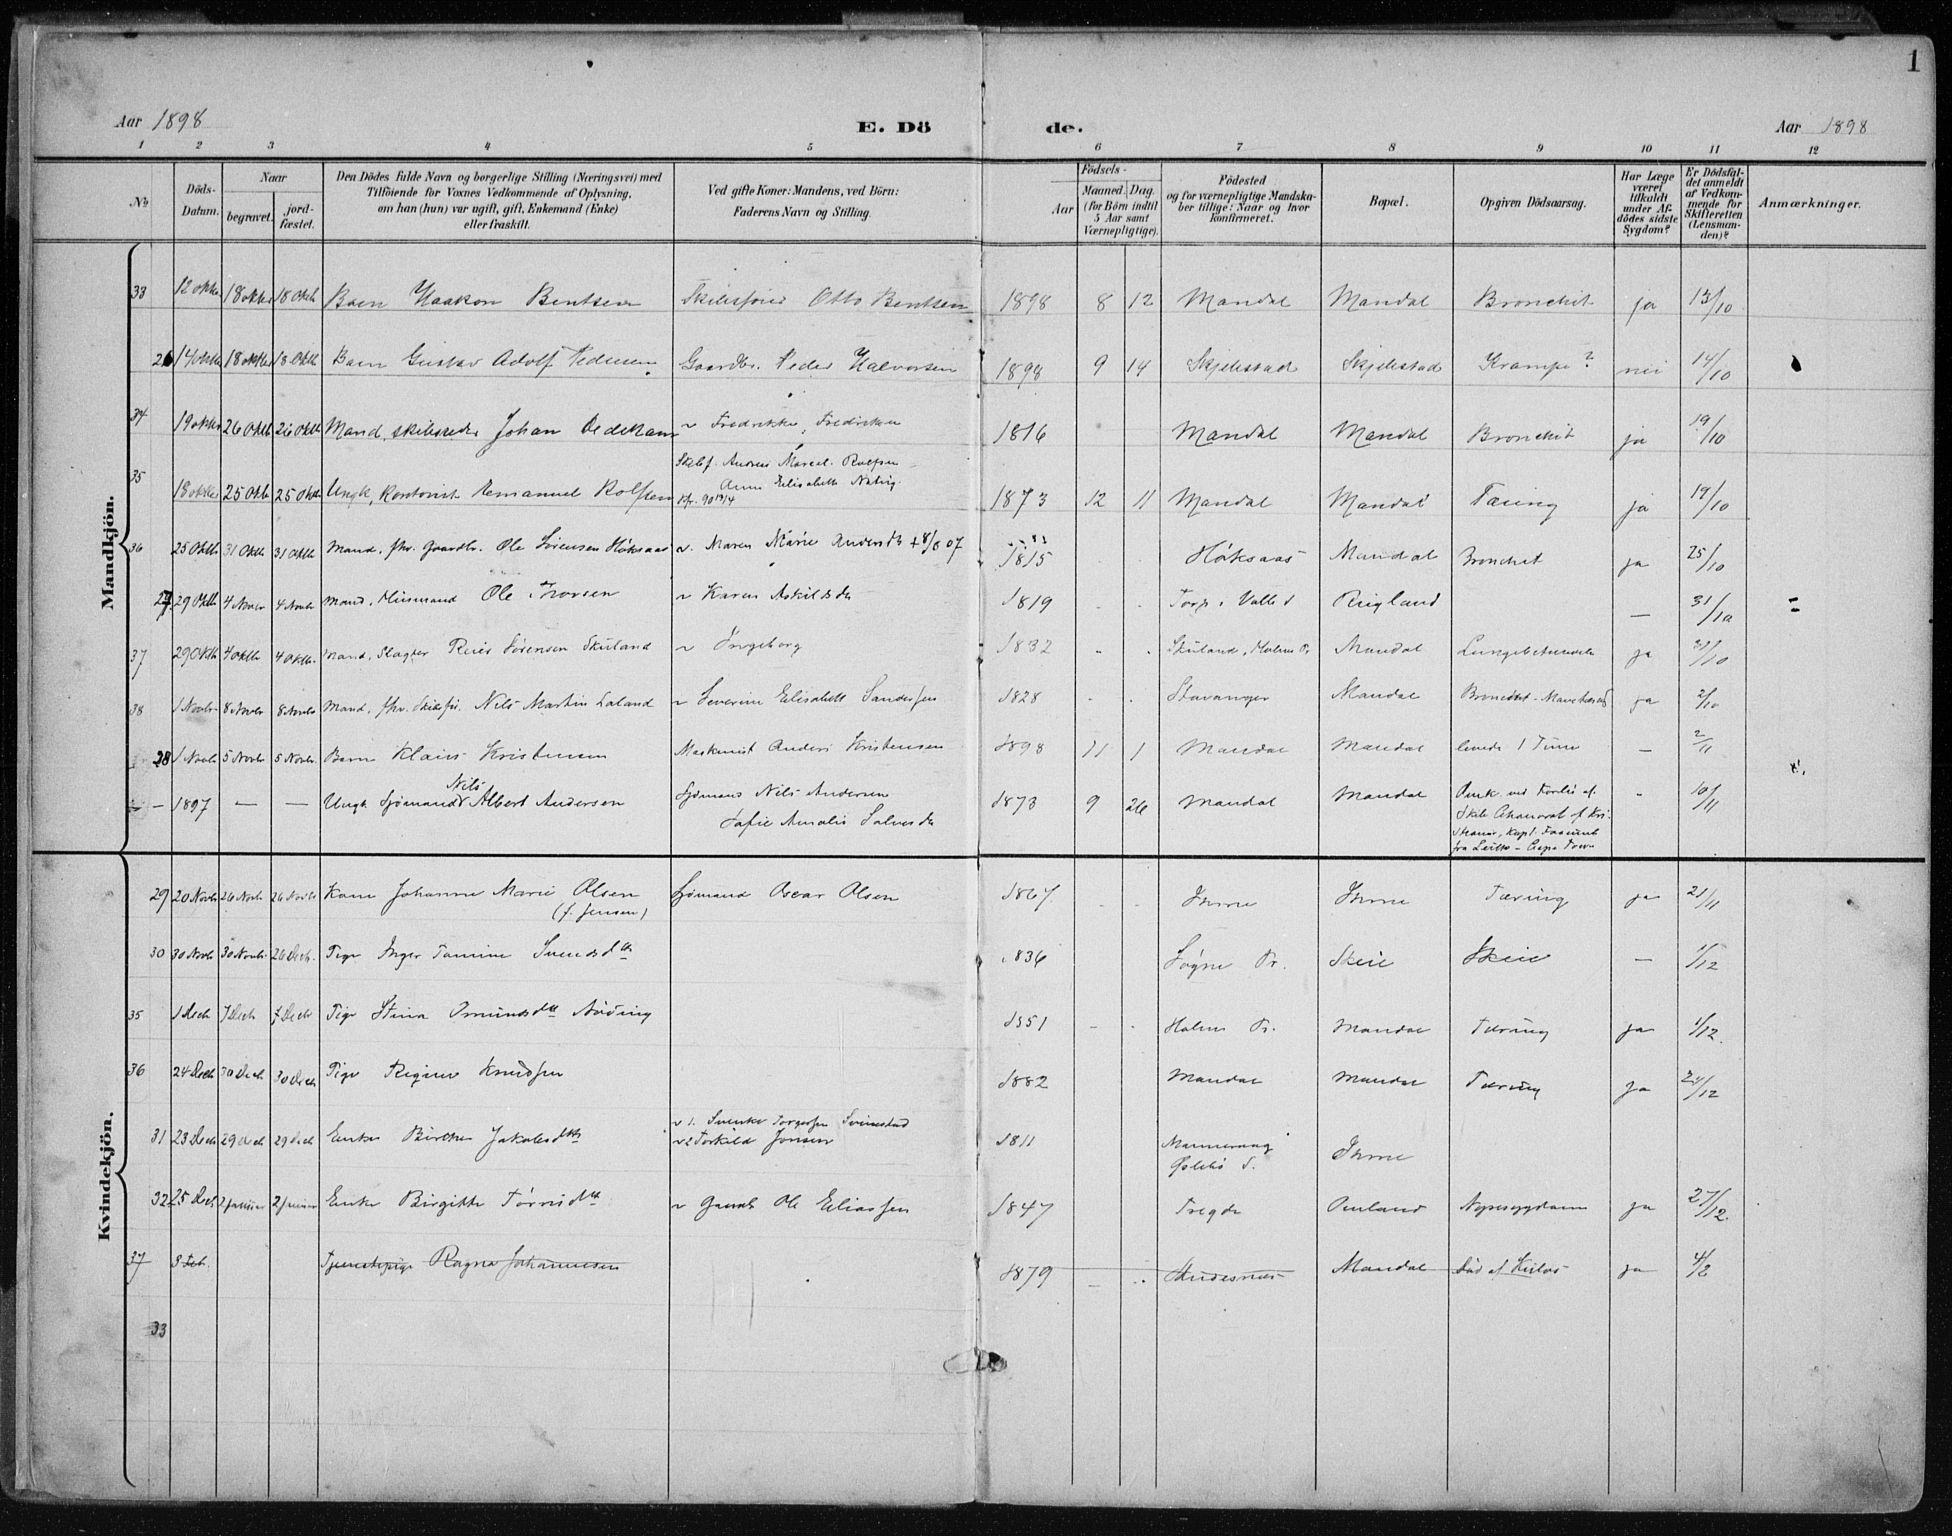 1
Aar 1898 E. Dö de. Aar 1898
1 2 3 4 5 6 7 8 9 10 11 12
No. Döds-Datum. Naar begravet. jord-fæstet. Den Dödes fulde Navn og borgerlige Stilling (Næringsvei) med Tilföiende for Voxnes Vedkommende af Oplysning, om han (hun) var ugift, gift, Enkemand (Enke) eller fraskilt. Ved gifte Koner: Mandens, ved Börn: Faderens Navn og Stilling. Födsels- Aar Maaned. Dag. (for Börn indtil 5 Aar samt Værnepligtige). Födested og for værnepligtige Mandskaber tillige: Naar og hvor konfirmeret. Bopæl. Opgiven Dödsaarsag. Har Læge været tilkaldt under Afdödes sidste Sygdom? Er Dödsfaldet anmeldt af Vedkommende for Skifteretten (Lensmanden)? Anmærkninger.
Mandkjön.
33 12 oktbr 18 oktbr 18 Oktb Barn Haakon Bentsen Skibsfører Otto Bentsen 1898 8 12 Mandal Mandal Bronchit ja 13/10
26 14 oktbr 18 oktbr 18 Oktb Barn Gustav Adolf Pedersen Gaardbr. Peder Halvorsen 1898 9 14 Skjelstad Skjelstad Krampe? nei 14/10
34 19 oktbr 26 Oktb 26 Oktb Mand, skibsreder Johan Dedekam ~ Fredrikke, Fredriksen 1816 Mandal Mandal Bronchit ja 19/10
35 18 oktbr 25 Oktb 25 Oktb Ungk, Kontorist Emanuel Rolfsen Skibsf. Andreas Marcel. Rolfsen
Anne Elisabeth Natvig
Kfr. 90 13/4 1873 12 11 Mandal Mandal Tæring ja 19/10
36 25 Oktb 31 Oktb 31 Oktb Mand, fhv. Gaardbr. Ole Sørensen Høksaas ~ Maren Marie Andersdtr + 8/6 07 1815 Høksaas Mandal Bronchit ja 25/10
27 29 Oktb 4 Novbr 4 Novbr Mand, Husmand Ole Torsen ~ Karen Askildsdtr 1819 Torp i Valle S Rugland — 31/10 =
37 29 Oktb 4 oktb 4 Oktb. Mand, Slagter Reier Sørensen Skuland ~ Ingeborg 1832 Skuland, Holum Pr. Mandal Lungebetændelse ja 31/10
38 1 Novbr 8 Novbr 8 Novbr Mand, fhv. Skibsfø. Nils Martin Laland ~ Severine Elisabeth Sandersen 1828 Stavanger Mandal Bronchit - ja 2/10
28 1 Novb 5 Novbr 5 Novbr. Barn Klaus Kristensen Maskinist Anders Kristensen 1898 11 1 Mandal Mandal levede 1 Time — 2/11
— 1897 — — Ungk. Sjømand Nils Albert Andersen Sjømand Nils Andersen
Sofie Amalie Salvesdtr 1873 9 26 Mandal Mandal Omk. ved Forlis af
Skib af Kri-
stiansr, Kapt.
fra Leith - - 10/11
Kvindekjön.
29 20 Novb 26 Novb 26 Novbr Kone Johanne Marie Olsen
(f. Jensen) Sjømand Oscar Olsen 1867 Ihme Ihme Tæring ja 21/11
30 30 Novb 30 Novbr 26 Decb. Pige Inger Tomine Svendsdtr 1836 Søgne Pr. Skeie Skeie — 1/12
35 1 Decb 7 Decb 7 Decbr Pige Stina Omundsdtr Nøding 1851 Holum Pr. Mandal Tæring ja 1/12.
36 24 Decb 30 Decb 30 Decb Pige Regine Knudsen 1882 Mandal Mandal Tæring ja 24/12
31 23 Decb 29 Decb 29 Decb Enke Birthe Jakobsdtr ~ 1. Svenke Torgersen Svinestad
~ 2 Torkild Jonsen 1811 Manneraag
Øslebø S. Ihme
32 25 Decb 2 januar 2 januar Enke Birgitte Tørrisdtr ~ Gaardb Ole Eliassen 1847 Tregde Omland Nyresygdom ja 27/12.
37 3 Feb. Tjenestepige Ragna Johannesen 1879 Andesnæs Mandal Død af Kulos ja 4/2
33